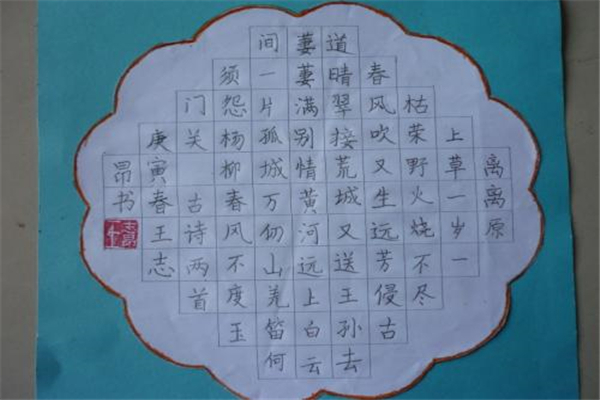 离离原
上草一岁一
枯荣野火烧不尽
春风吹又生远芳侵古
道晴翠接荒城又送王孙去
萋萋满别情黄河远上白云
间一片孤城万仞山羌笛何
须怨杨柳春风不度玉
门关 古诗两首
庚寅春王志
昂书